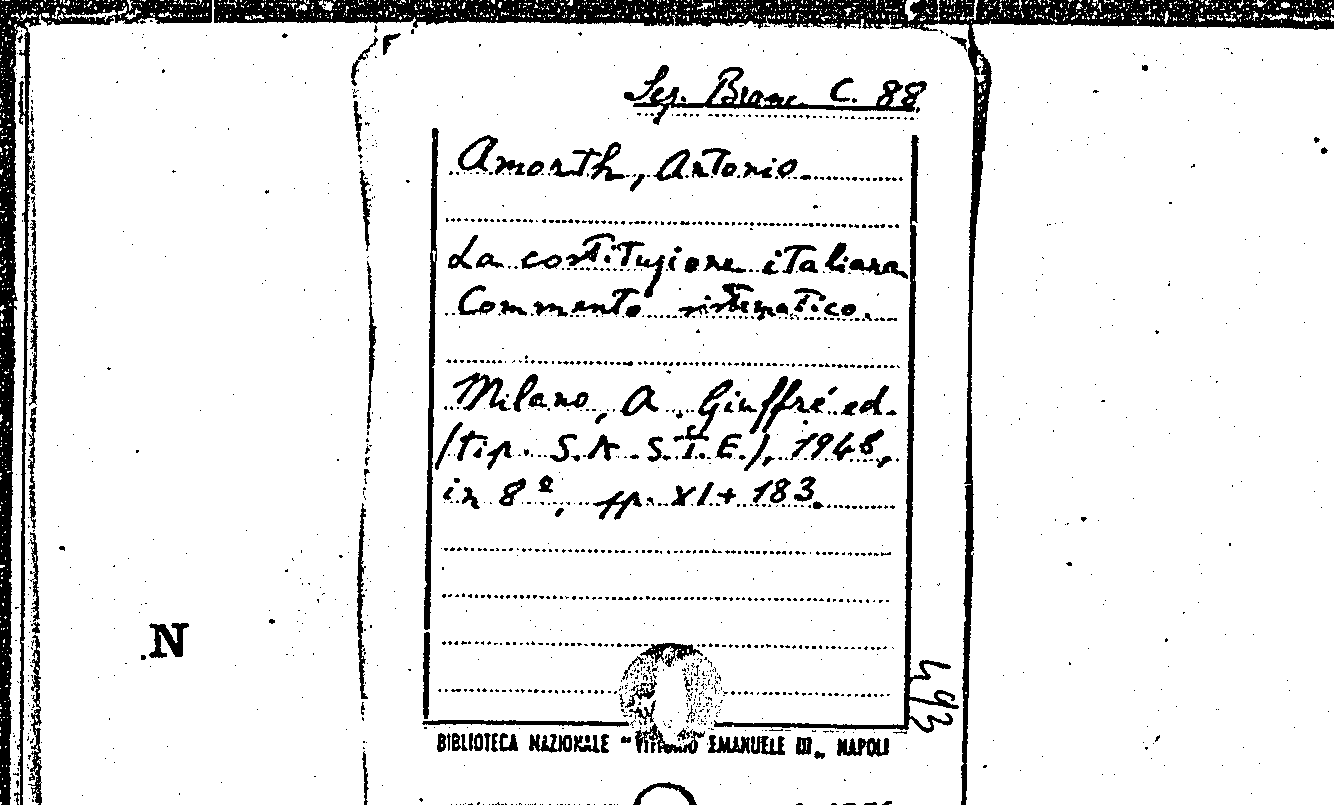 Leg. Branc. C. 88
Amorth, Antonio.
La costituzione italiana
Commento sistematico.
Milano, A. Giuffrè ed.
(tip. S.A.S.T.E.), 1948,
in 8º, pp. XI+183.
N
493
BIBLIOTECA NAZIONALE "VITTORIO EMANUELE III„ NAPOLI